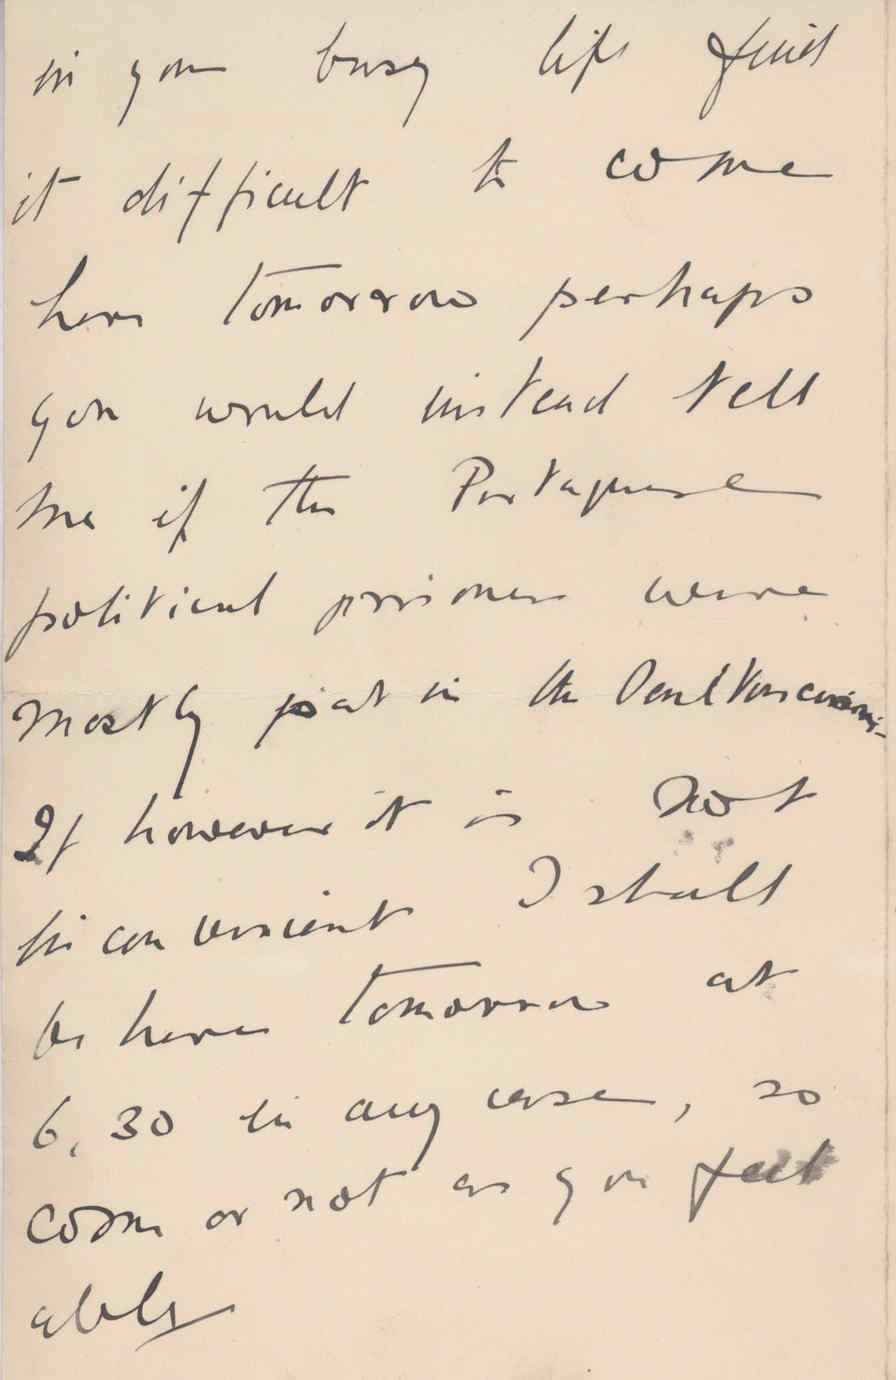 in your busy life find
it difficult to come
here tomorrow perhaps
you would instead tell
me if the Portuguese
political prisoners were
mostly put in the
If however it is not
inconvenient I shall
be here tomorrow at
6.30 in any case, so
come or not as you feel
able